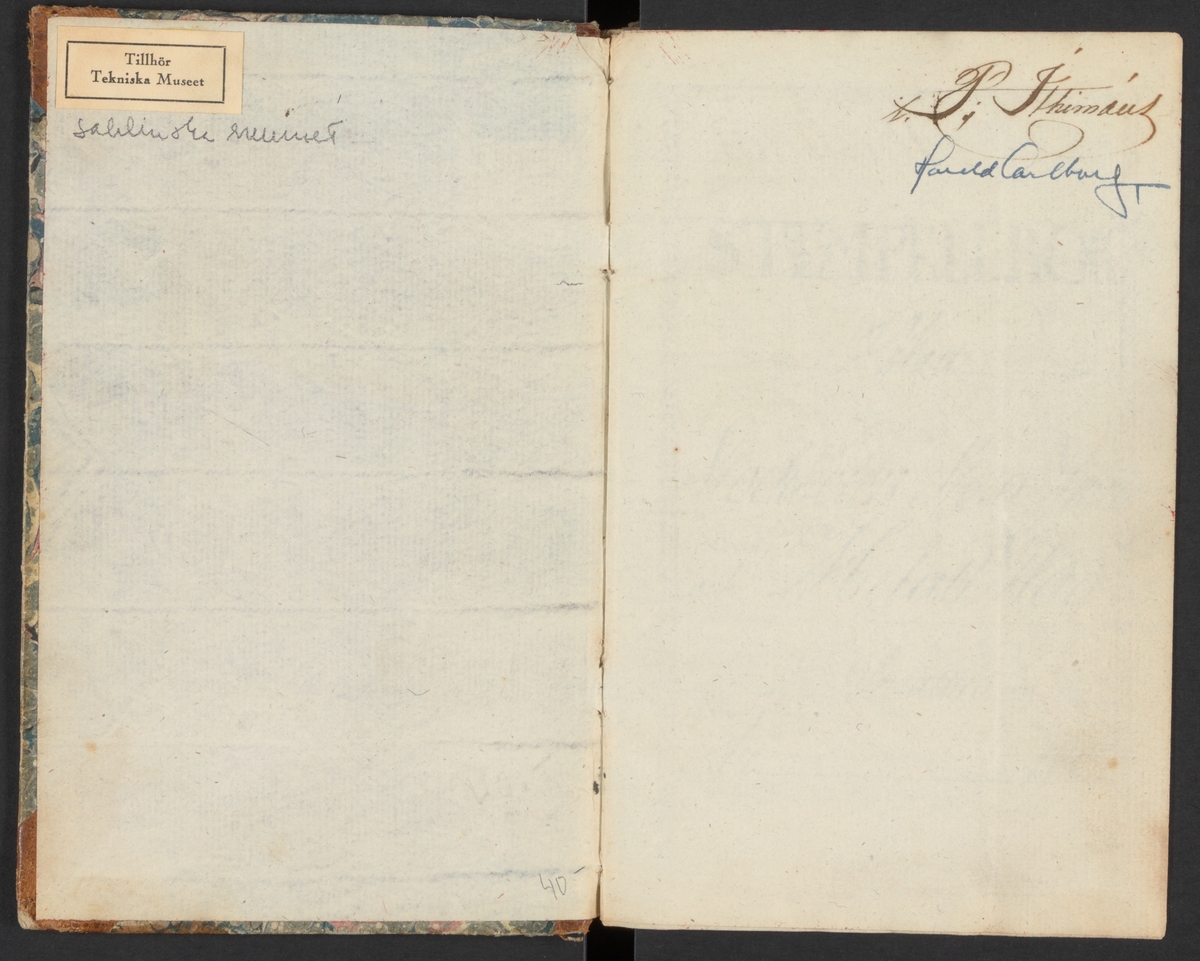 Tillhör
Tekniska Museet
Sahlinska rummet
40-
P. J. Thimans
Harald Carlborg